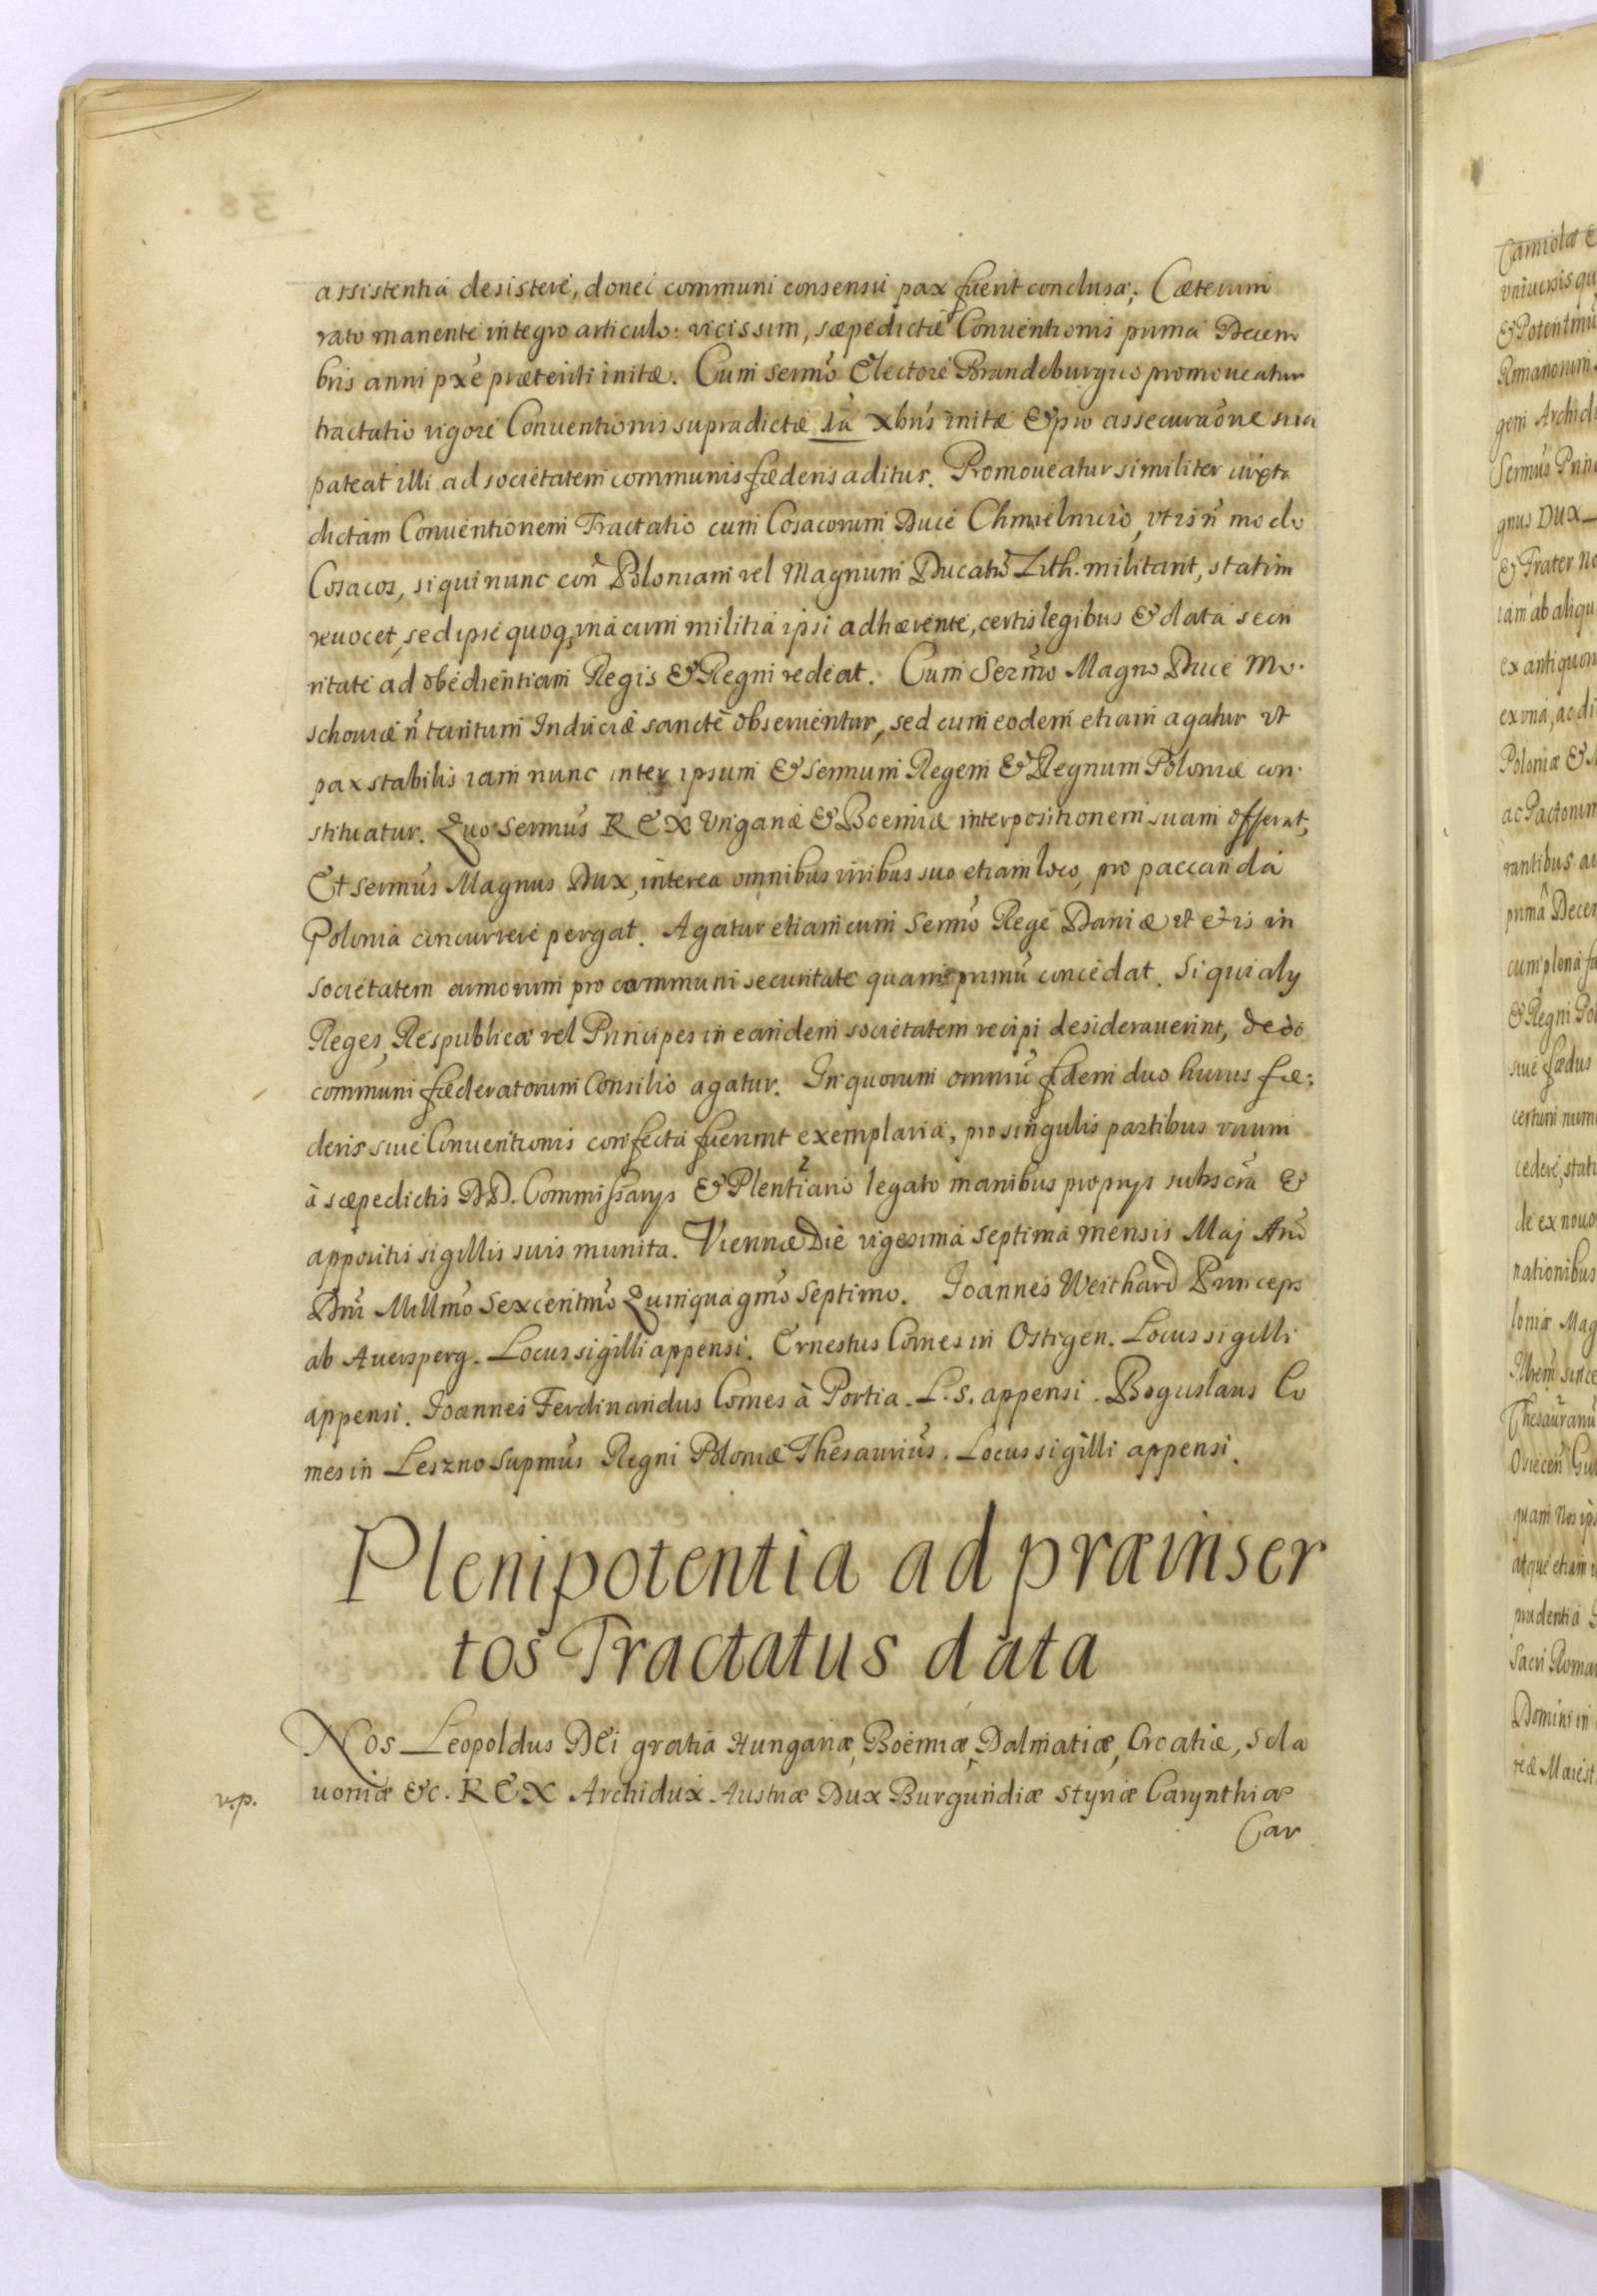 assistentia desistere, donec communi consensu pax fuerit conclusa; Cæterum
rato manente integro articulo: vicissim, sæpedictæ Conuentionis prima Decem
bris anni pxe præteriti initæ. Cum sermo Electore Brandeburgico promoueatur
tractatio vigore Conuentionis supradictæ 1a xbris initæ & pro assecuraone sua
pateat illi ad societatem communis fœderis aditus. Promoueatur similiter iuxta
dictam Conuentionem Tractatio cum Cosacorum Duce Chmielnicio, vt is n modo
Cosacos, si qui nunc con Poloniam vel Magnum Ducatu Lith. militant, statim
reuocet, sed ipse quoq, vna cum militia ipsi adhærente, certis legibus & data secu
ritate ad obedientiam Regis & Regni redeat. Cum Sermo Magno Duce Mo.
schouiæ n tantum Induciæ sancte obseruentur, sed cum eodem etiam agatur vt
pax stabilis iam nunc inter ipsum & sermum Regem & Regnum Poloniæ con.
stituatur. Quo sermus REX Vngariæ & Boemiæ interpositionem suam offerat,
Et sermus Magnus Dux, interea omnibus viribus suo etiam loco, pro paccanda
Polonia concurrere pergat. Agatur etiam cum Sermo Rege Daniæ vt et is in
societatem armorum pro communi securitate quam primu concedat. Si qui alij
Reges, Respublicæ vel Principes in eandem societatem recipi desiderauerint, de eo
communi fœderatorum Consilio agatur. In quorum omniu fidem duo huius fœ:
deris siue Conuentionis confecta fuerunt exemplaria, pro singulis partibus vnum
à sæpedictis DD. Commissarijs & Plentiario legato manibus proprijs subscra &
appositis sigillis suis munita. Viennæ Die vigesima septima mensis Maj Ano
Dni Millmo Sexcentmo Quinquagmo Septimo. Joannes Weichard Princeps
ab Auersperg. Locus sigilli appensi. Ernestus Comes in Ostigen. Locus sigilli
appensi. Joannes Ferdinandus Comes à Portia. L. S. appensi. Boguslaus Co
mes in Leszno Supmus Regni Poloniæ Thesaurius. Locus sigilli appensi.
Plenipotentia ad præinser
tos Tractatus data
Nos Leopoldus DEi gratia Hungariæ, Boemiæ, Dalmatiæ, Croatiæ, Scla
uoniæ &c. REX Archidux Austriæ Dux Burgundiæ Styriæ Carynthiæ
v.p.
Car